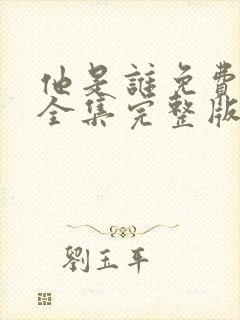 他是誰免費
全集完整版
劉玉平